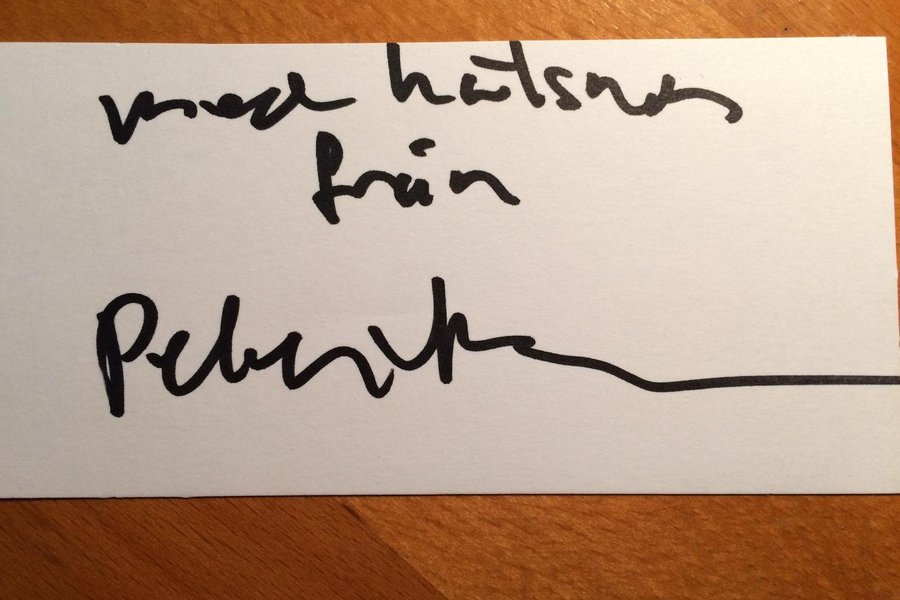 med hälsning
från